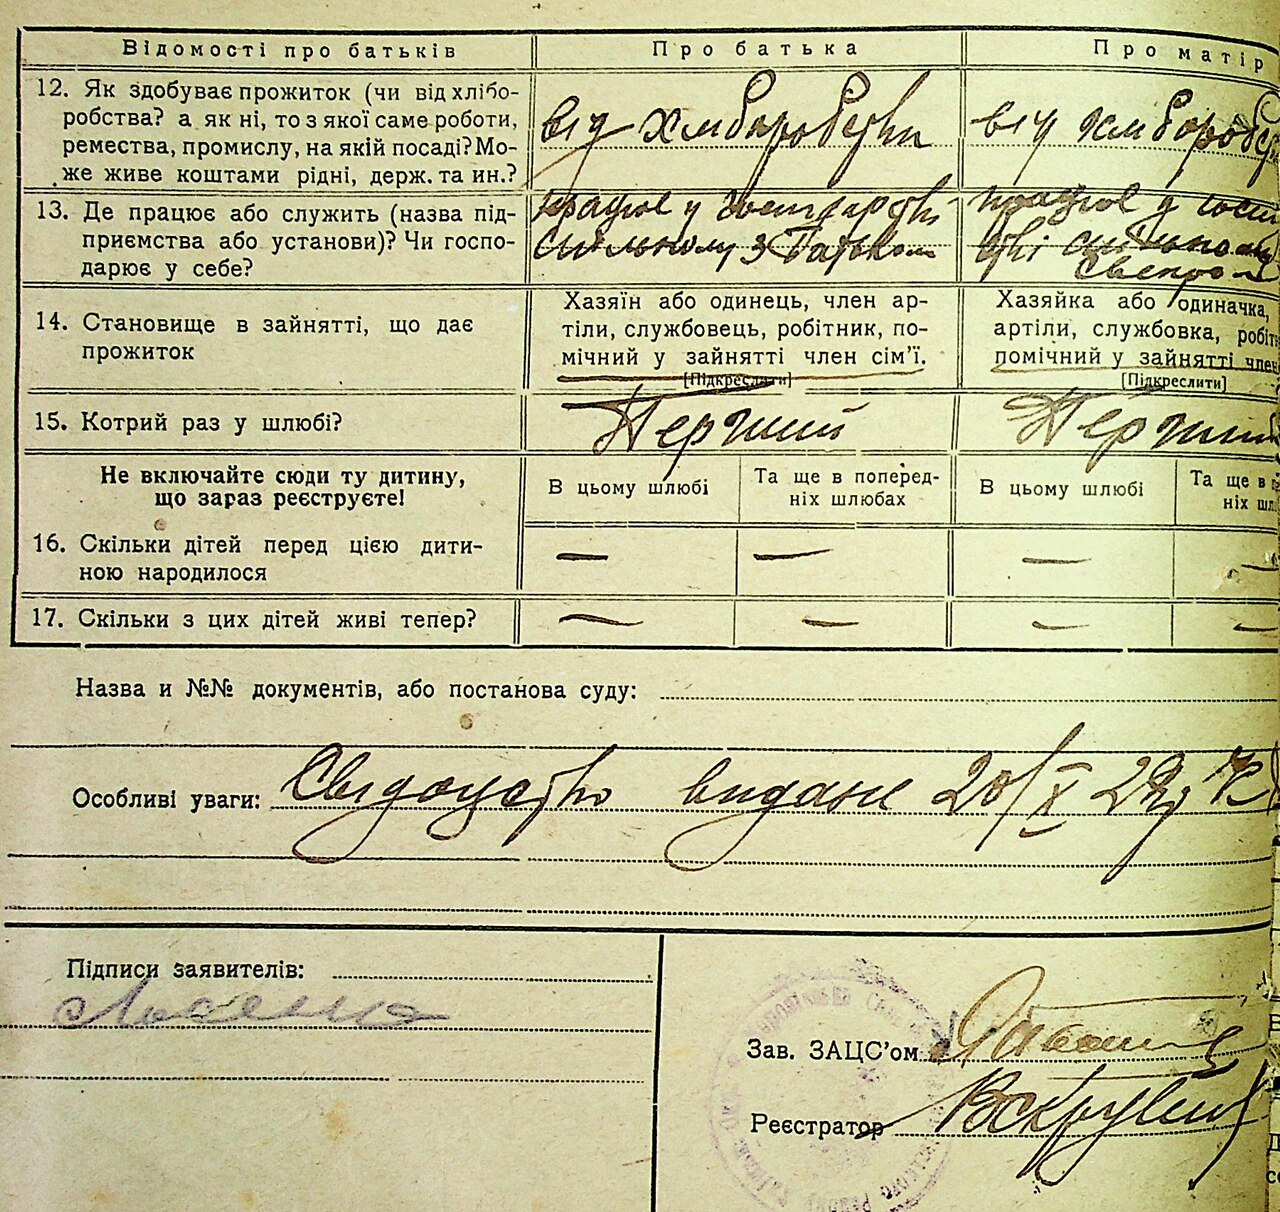 Відомості про батьків
Про батька
Про матір
12. Як здобуває прожиток (чи від хлібо-
робства? а як ні, то з якої саме роботи,
ремества, промислу, на якій посаді? Мо-
же живе коштами рідні, держ. та ин.?
від хліборобства
від хліборобс
13. Де працює або служить (назва під-
приємства або установи)? Чи госпо-
дарює у себе?
працює у господарстві
спільному з батьком
працює у госп
стві спільному
свекром
14. Становище в зайнятті, що дає
прожиток
Хазяїн або одинець, член ар-
тіли, службовець, робітник, по-
мічний у зайнятті член сім'ї.
[Підкреслити]
Хазяйка або одиначка,
артіли, службовка, робіт
помічний у зайнятті член
[Підкреслити]
15. Котрий раз у шлюбі?
Перший
Перший
Не включайте сюди ту дитину,
що зараз реєструєте!
В цьому шлюбі
Та ще в поперед-
ніх шлюбах
В цьому шлюбі
Та ще в п
ніх шл
16. Скільки дітей перед цією дити-
ною народилося
— — — —
17. Скільки з цих дітей живі тепер?
— — — —
Назва и №№ документів, або постанова суду:
Особливі уваги: Свідоцтво видане 20/X 29р
Підписи заявителів:
Зав. ЗАЦС'ом
Реєстратор